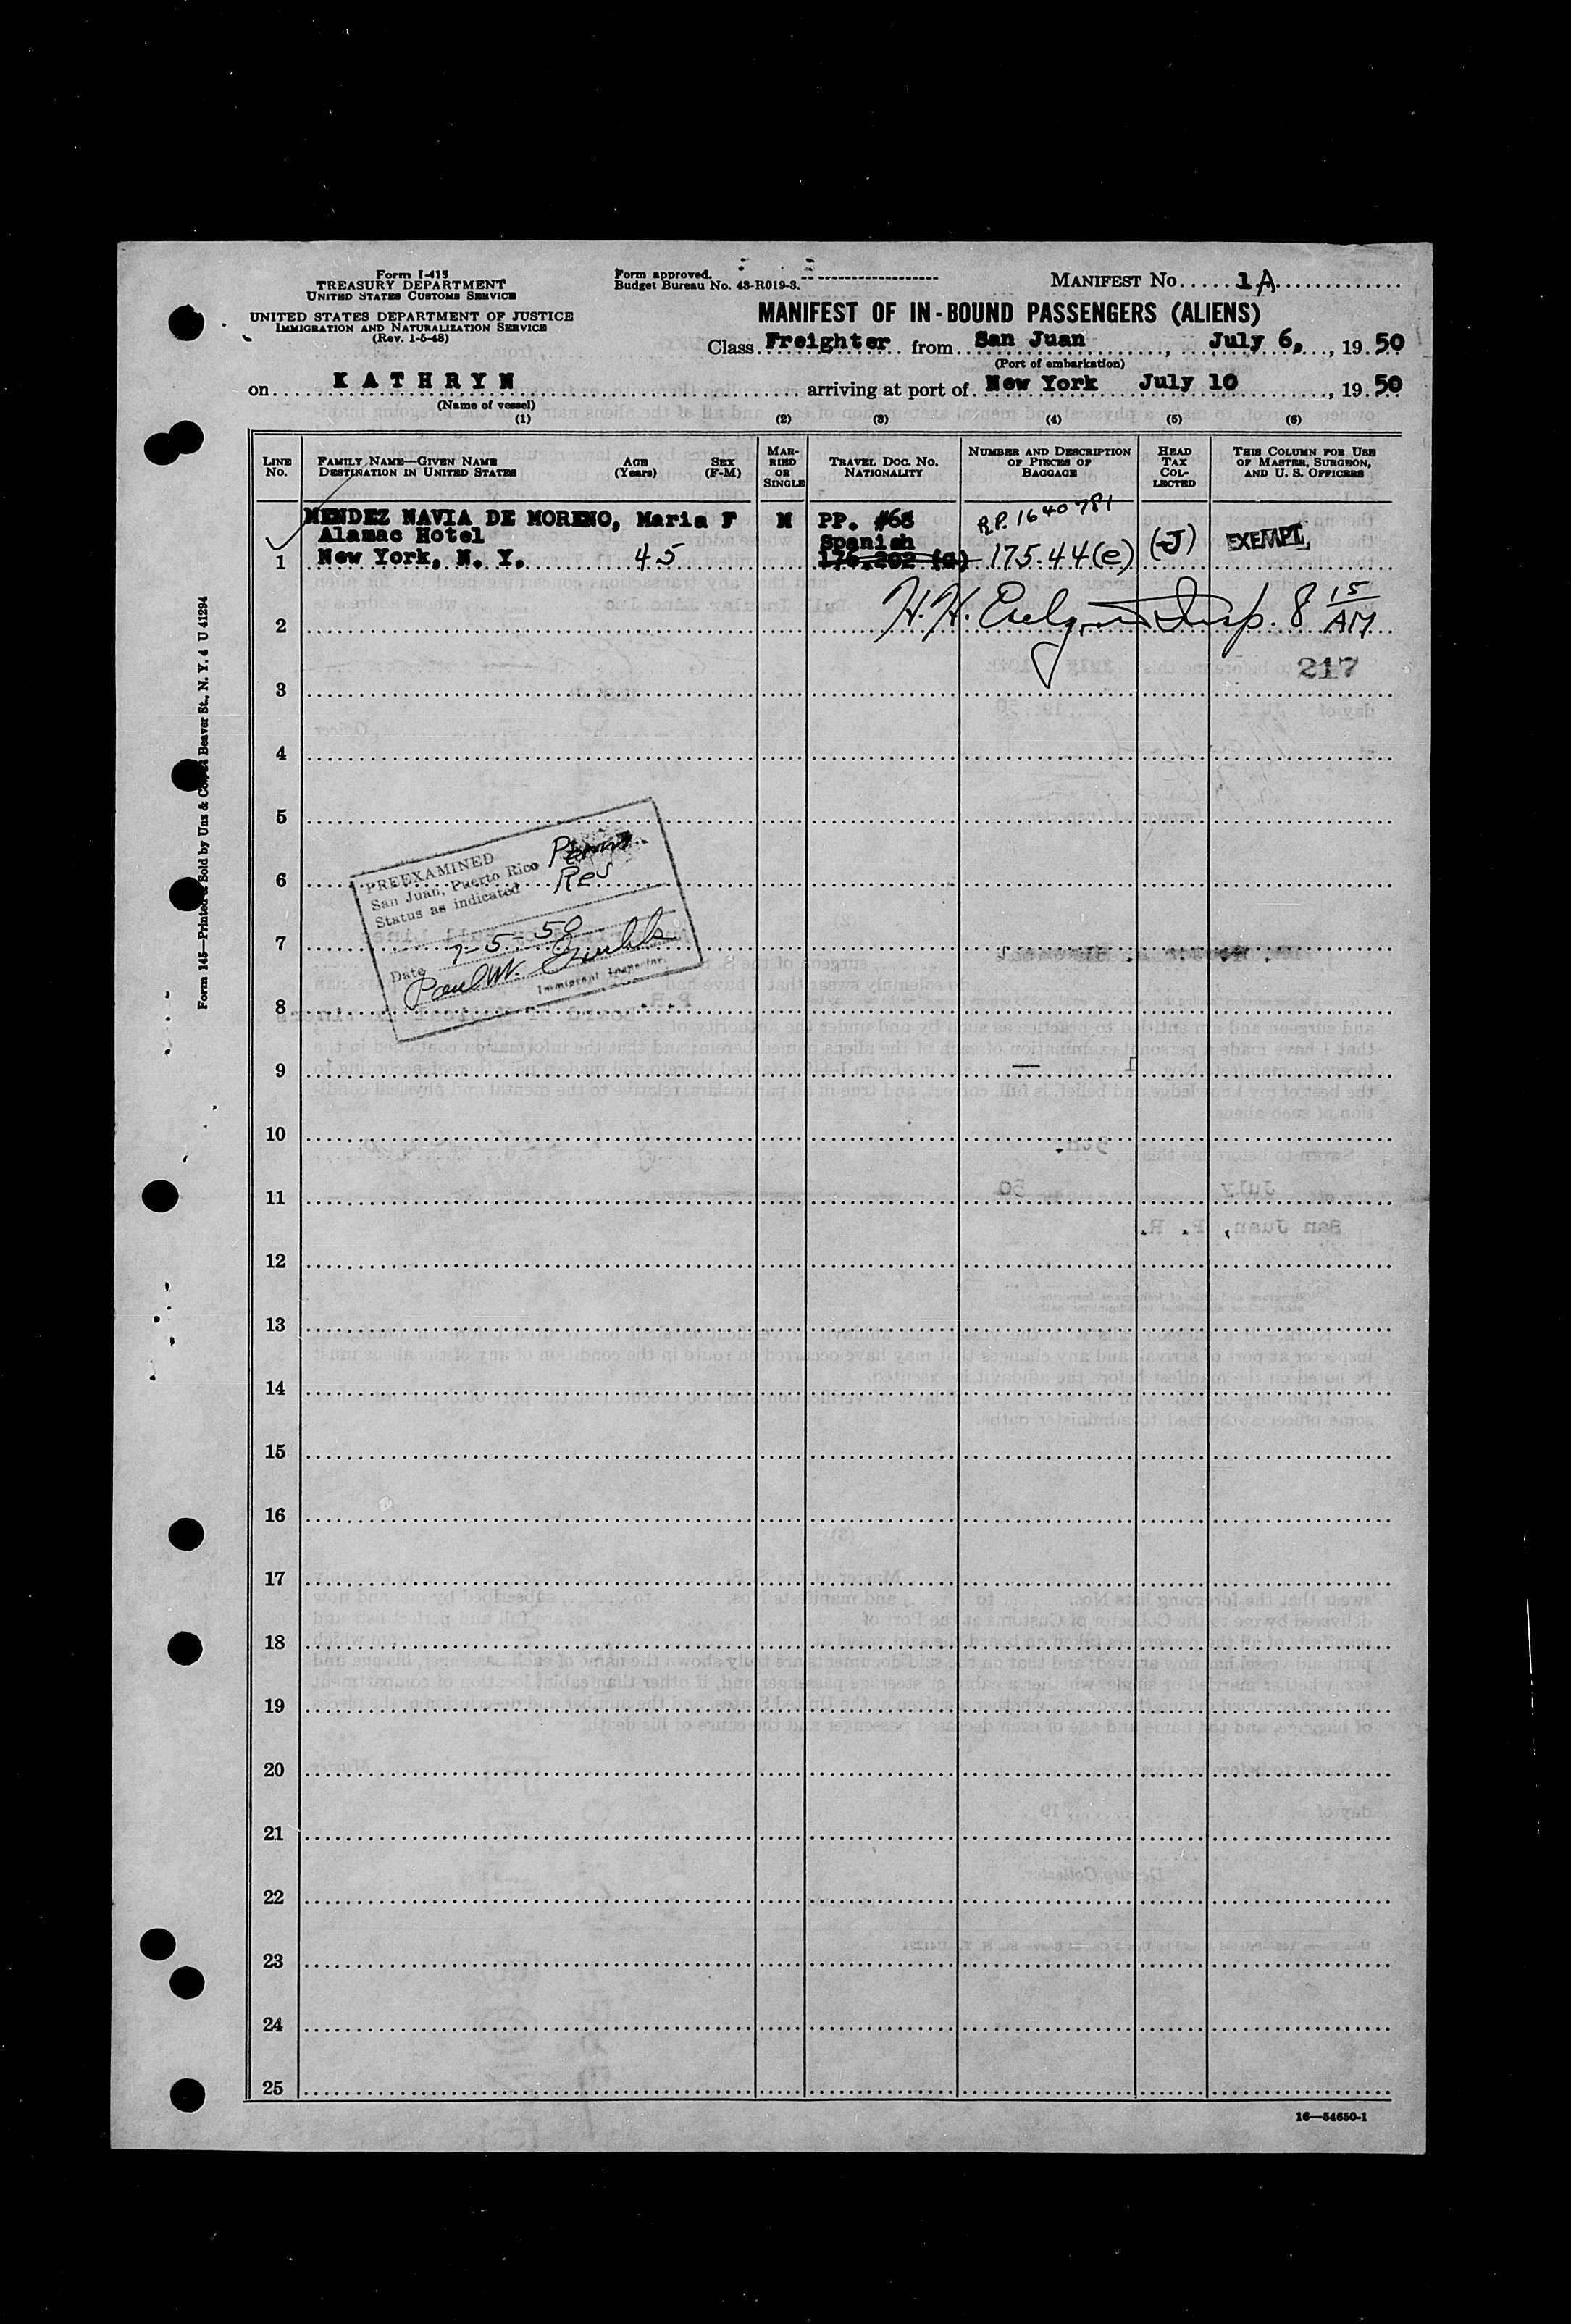 Form I-415
TREASURY DEPARTMENT
UNITED STATES CUSTOMS SERVICE
UNITED STATES DEPARTMENT OF JUSTICE
IMMIGRATION AND NATURALIZATION SERVICE
(Rev. 1-5-48)
Form approved.
Budget Bureau No. 43-R019-3.
MANIFEST No. 1A
MANIFEST OF IN-BOUND PASSENGERS (ALIENS)
Class Freighter from San Juan, July 6, 1950
(Port of embarkation)
on KATHRYN arriving at port of New York July 10, 1950
(Name of vessel)
(1) (2) (3) (4) (5) (6)
LINE No. FAMILY NAME—GIVEN NAME DESTINATION IN UNITED STATES AGE (Years) SEX (F-M) MARRIED OR SINGLE TRAVEL DOC. NO. NATIONALITY NUMBER AND DESCRIPTION OF PIECES OF BAGGAGE HEAD TAX COLLECTED THIS COLUMN FOR USE OF MASTER, SURGEON, AND U. S. OFFICERS
MENDEZ NAVIA DE MORENO, Maria F M PP. #68 R.P. 1640781
Alamac Hotel Spanish (J) EXEMPT
1 New York, N. Y. 45 176.202 (a) 175.44(e)
2 H. H. Insp. 8 15/AM
217
3
4
5
PREEXAMINED
San Juan, Puerto Rico Perm
Status as indicated Res
6
7
Date 7-5-50
Paul W.
Immigrant Inspector.
8
9
10
11
12
13
14
15
16
17
18
19
20
21
22
23
24
25
16—54650-1
Form 145—Printed & Sold by Unz & Co., Beaver St., N. Y. 4 U 41294